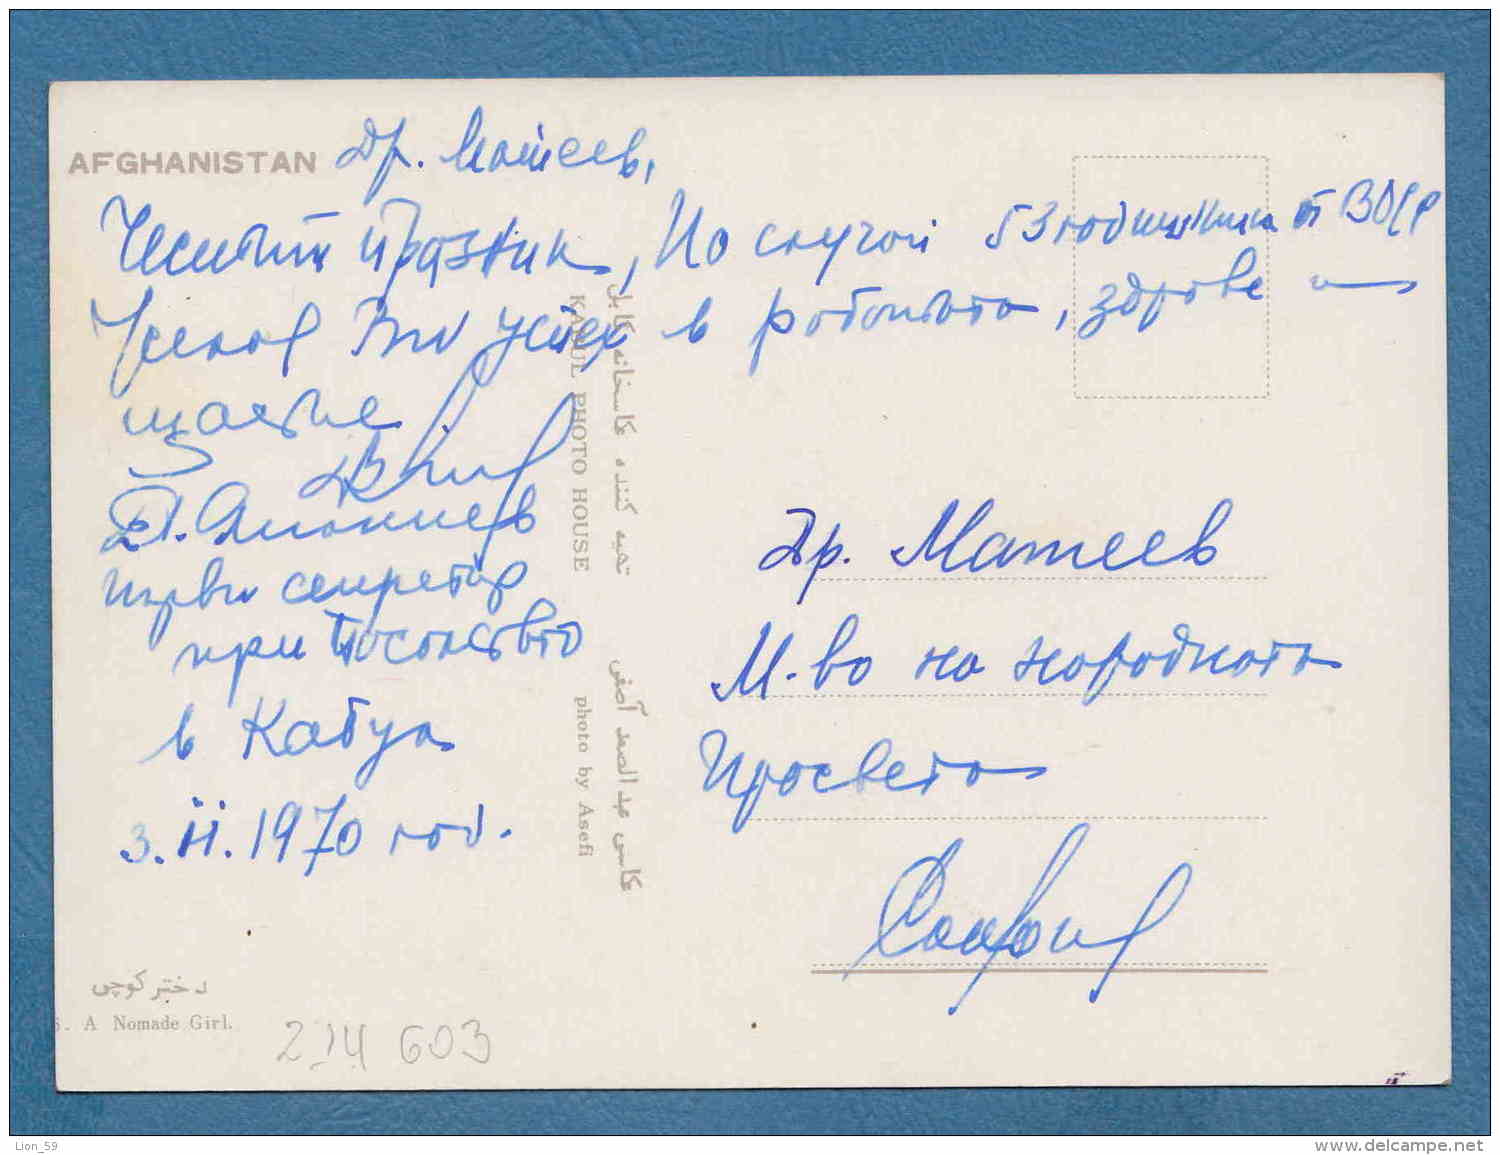 AFGHANISTAN
Др. Матеев,
Честит празник, По случай 53 годишнина от ВОСР
Желая Ви успех в работата, здраве и
щастие
първи секретар
при Посолството
в Кабул
3.II.1970 год.
KABUL PHOTO HOUSE photo by Asefi
تهیه کننده عکاسخانه کابل
عکاسی عبدالصمد آصفی
Др. Матеев
М-во на народната
просвета
София
دختر کوچی
. A Nomade Girl.
603
Lion_59
www.delcampe.net